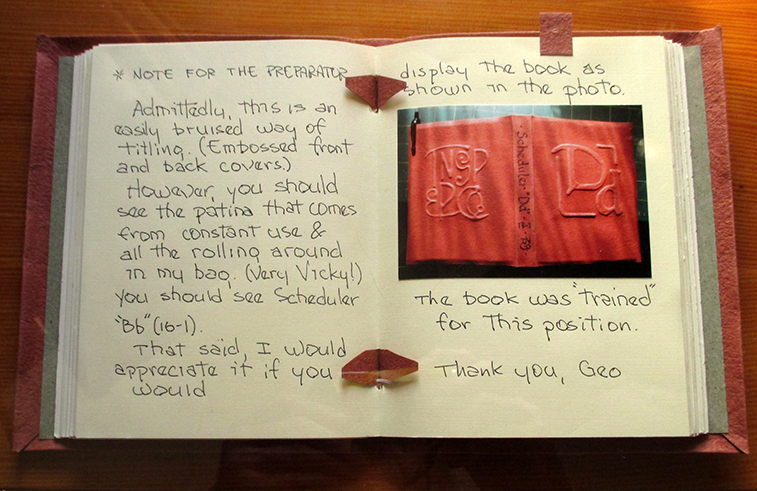 * NOTE FOR THE PREPARATOR
Admittedly, this is an
easily bruised way of
titling. (Embossed front
and back covers.)
However, you should
see the patina that comes
from constant use &
all the rolling around
in my bag. (Very Vicky!)
you should see Scheduler
"Bb" (10-1).
That said, I would
appreciate it if you
would
display the book as
shown in the photo.
Scheduler "Dd"
The book was "trained"
for this position.
Thank you, Geo